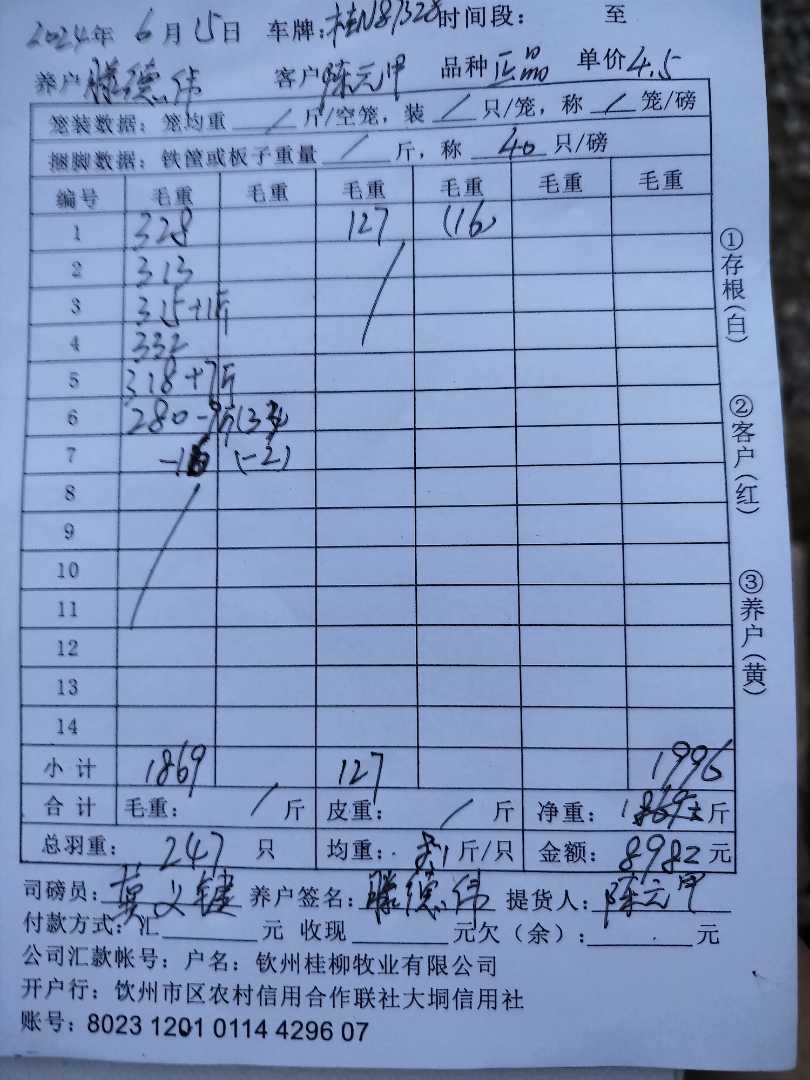 2024年 6月15日 车牌:桂N87328 时间段: 至
养户 滕德伟 客户 陈元甲 品种 正品 单价4.5
笼装数据: 笼均重 / 斤/空笼, 装 / 只/笼, 称 / 笼/磅
捆脚数据: 铁筐或板子重量 / 斤, 称 40 只/磅
编号 毛重 毛重 毛重 毛重 毛重 毛重
1 328 127 (16)
2 313
3 315+1斤
4 332
5 318+7斤
6 280-斤
7 (-2)
8
9
10
11
12
13
14
小计 1869 127 1996
合计 毛重: / 斤 皮重: / 斤 净重: 斤
总羽重: 247 只 均重: 斤/只 金额: 8982元
司磅员: 莫义键 养户签名: 滕德伟 提货人: 陈元甲
付款方式: 汇 元 收现 元欠(余): 元
公司汇款帐号: 户名: 钦州桂柳牧业有限公司
开户行: 饮州市区农村信用合作联社大垌信用社
账号: 8023 1201 0114 4296 07
①存根(白)
②客户(红)
③养户(黄)